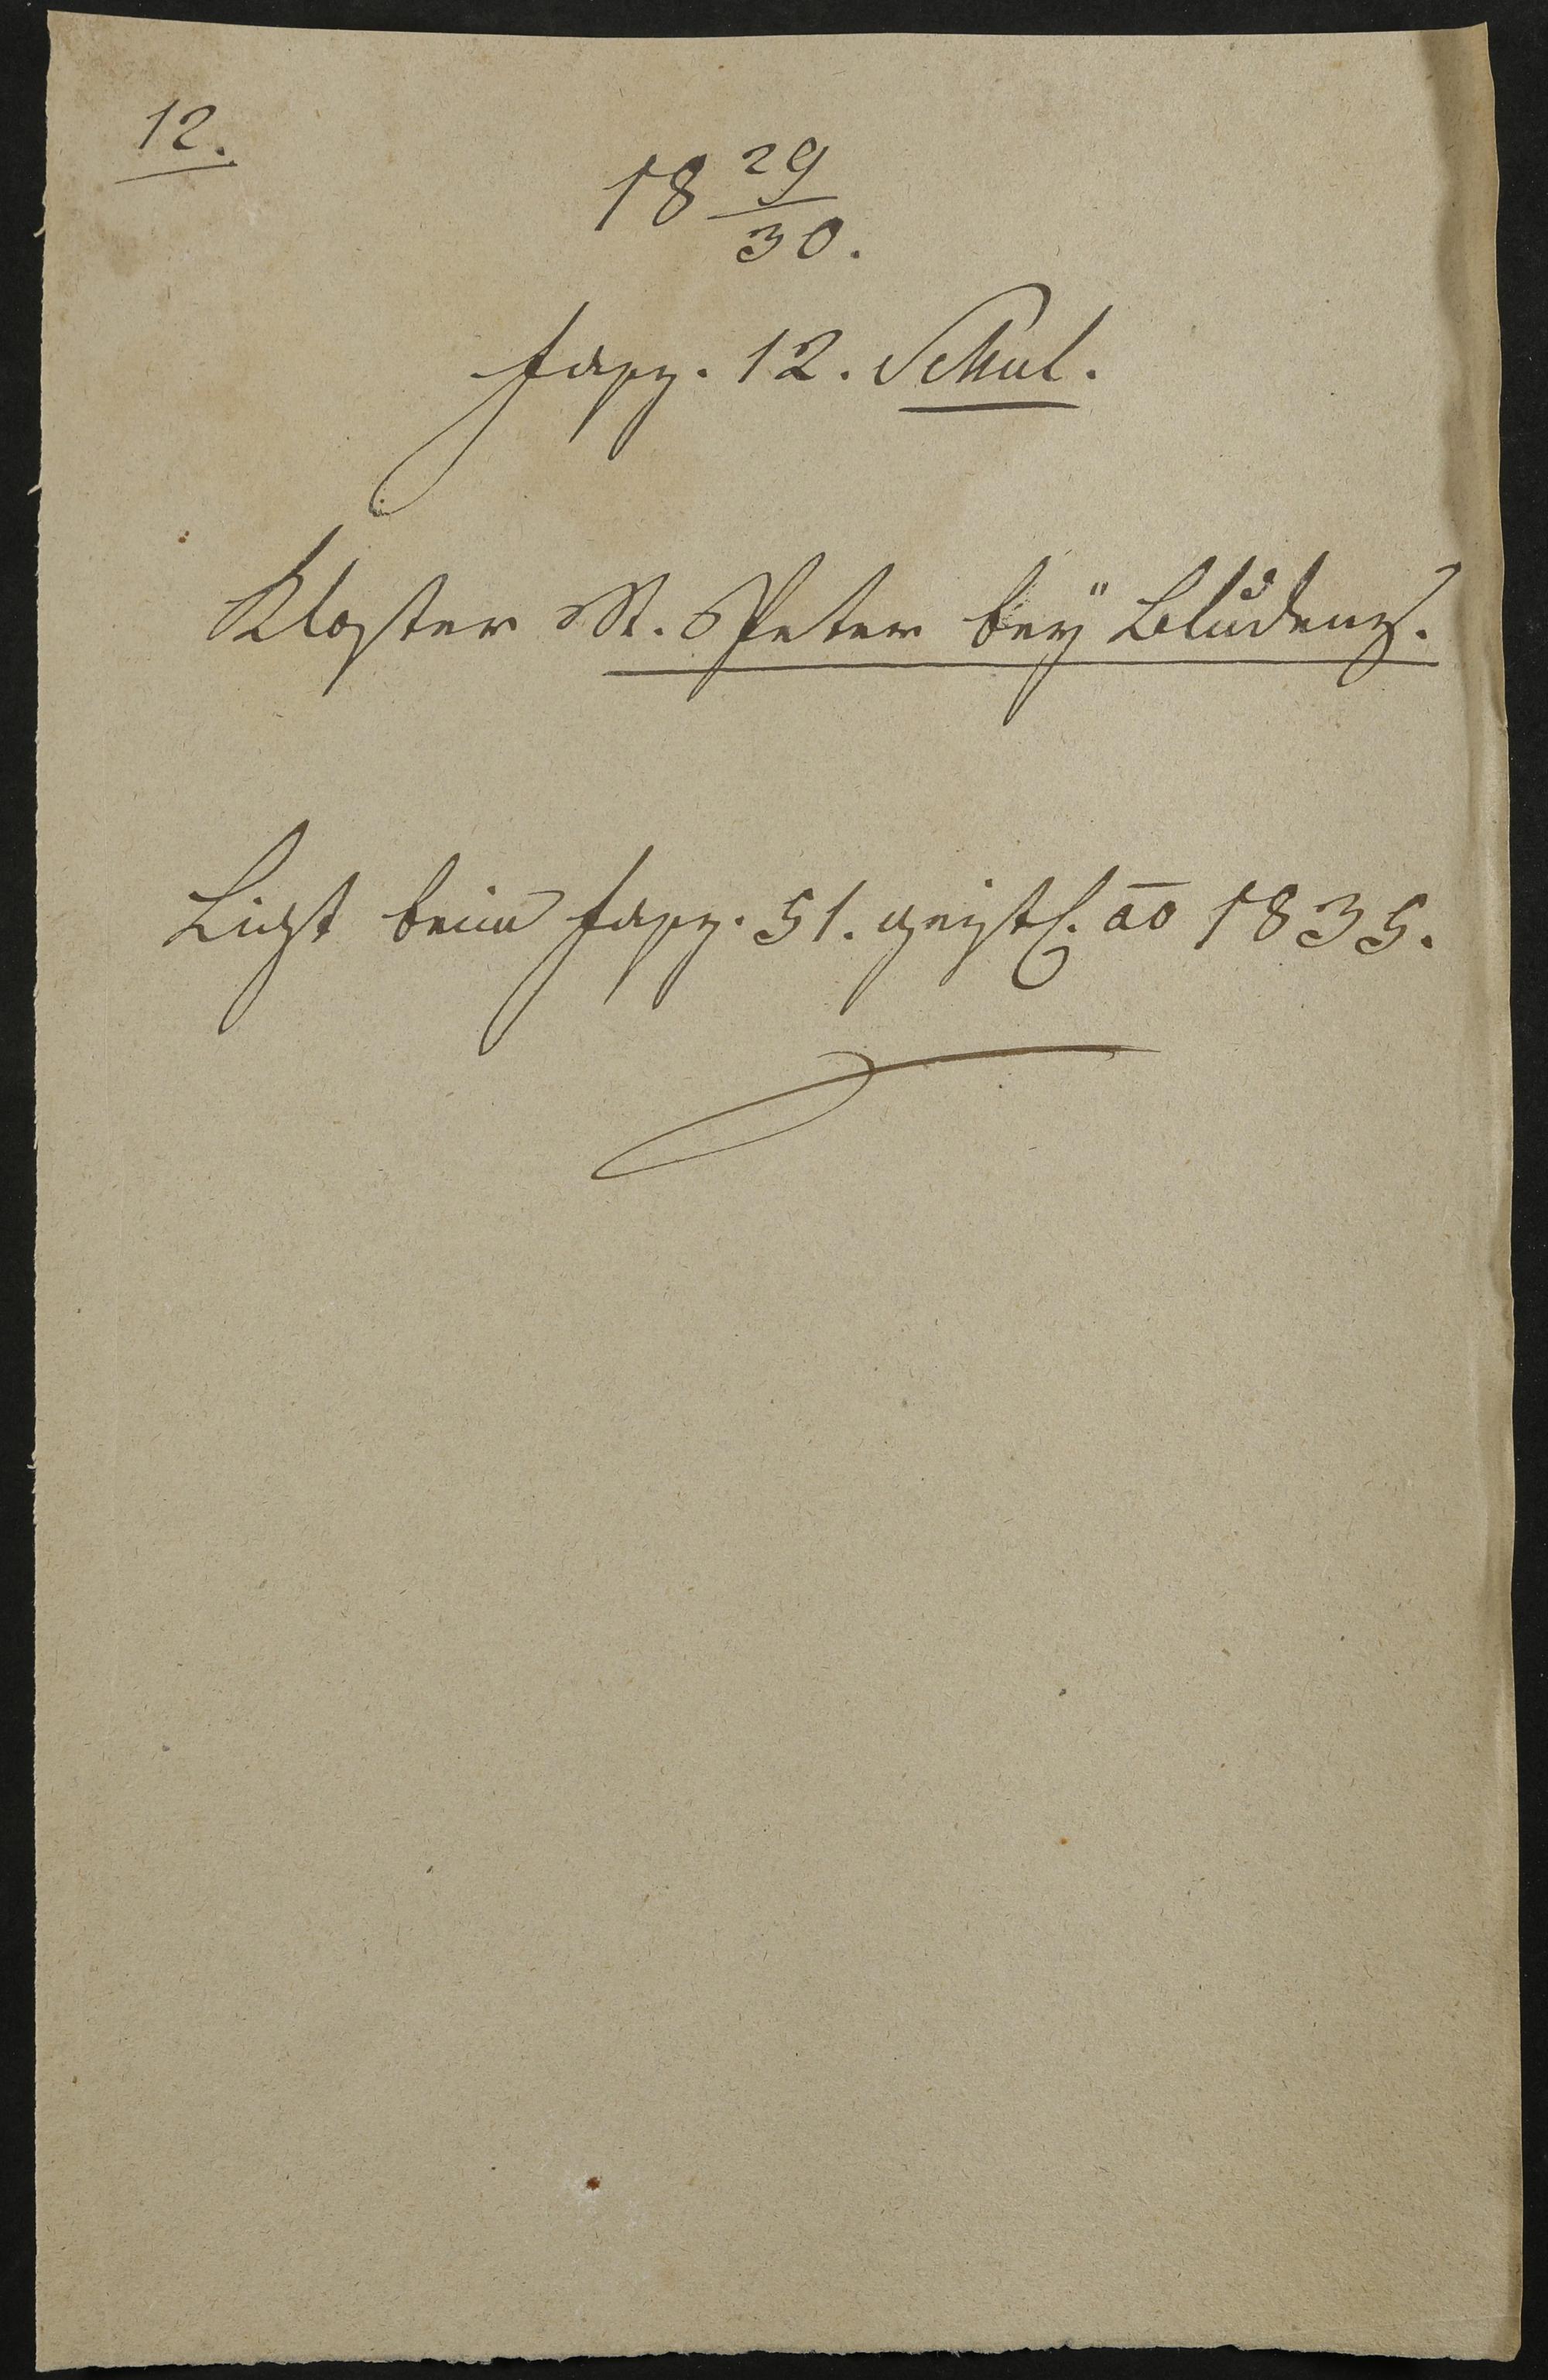 12.
18 29/30.
Fasz. 12. Schul.
Kloster St. Peter bey Bludenz.
Ligt beim Fasz. 51. geistl. ao 1835.